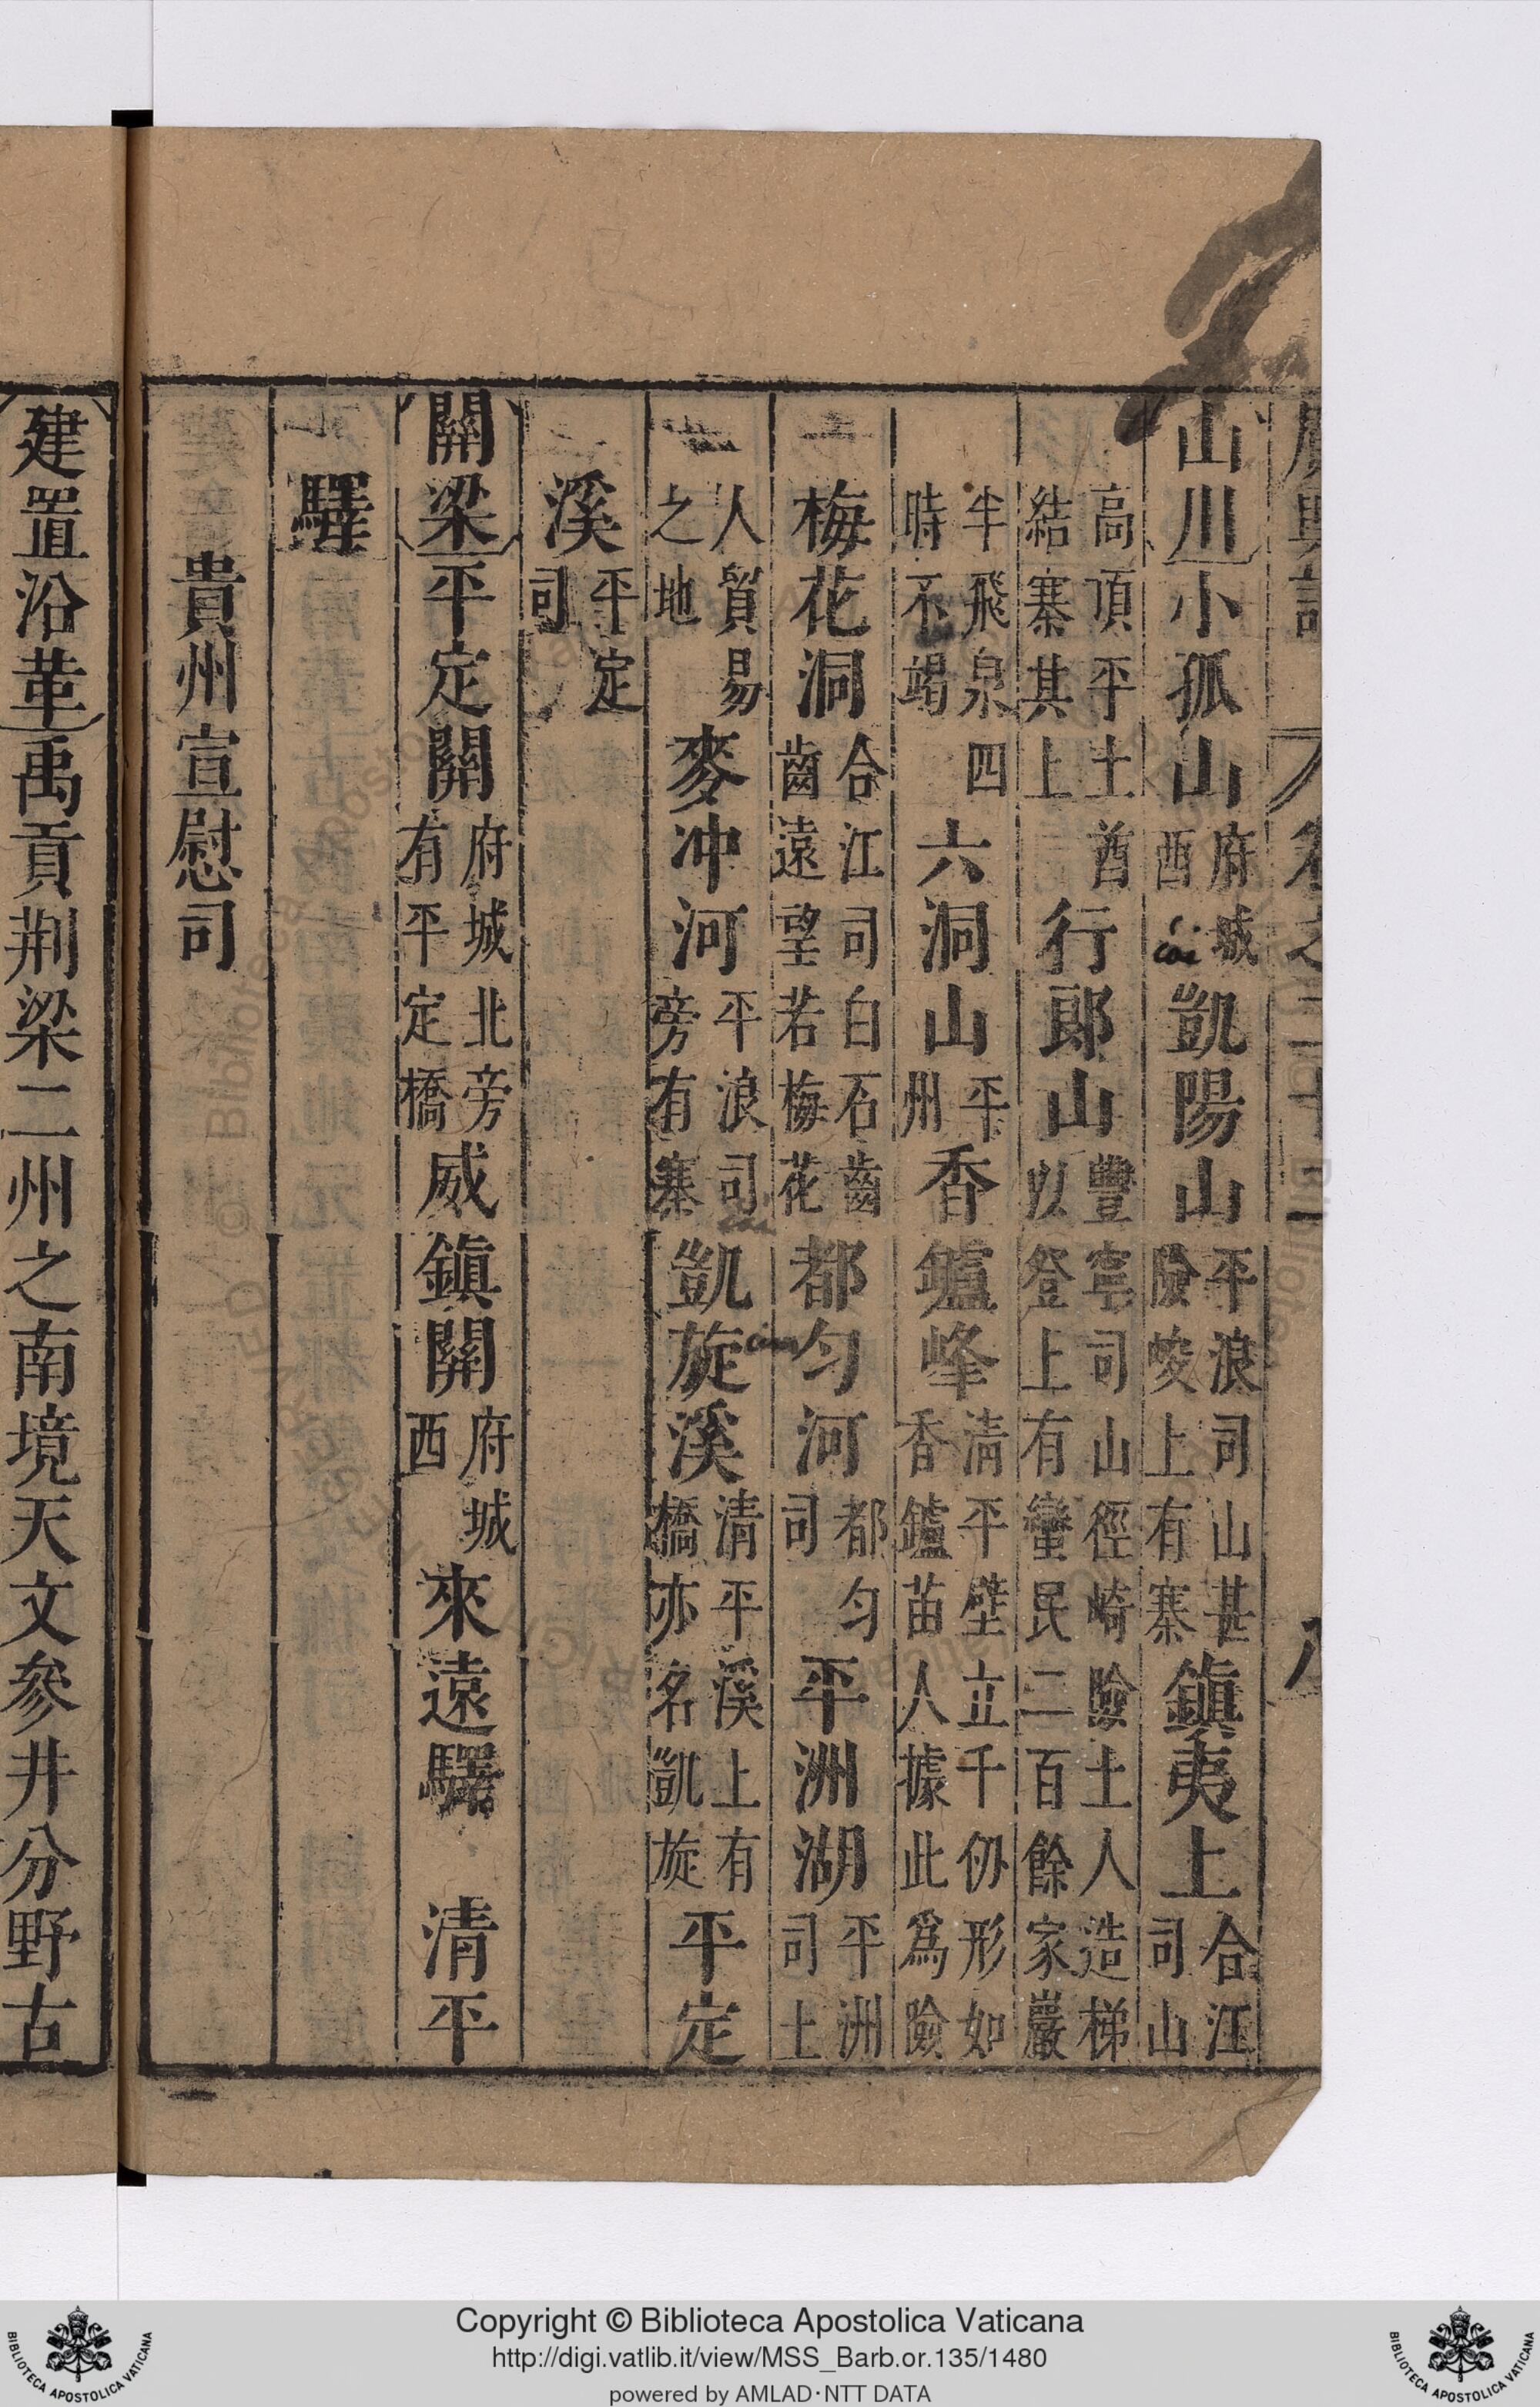 廣輿記 卷之二十三
山川 小孤山 府城酉 cai 凱陽山 平浪司山甚險峻上有寨 鎮夷上 合江司山
高頂平土酋結寨其上 行郎山 豐寧司山徑崎險土人造梯以登上有蠻民二百餘家巖
半飛泉四時不竭 六洞山 平州 香鑪峰 清平壁立千仞形如香鑪苗人據此爲險
梅花洞 合江司白石齒齒遠望若梅花 都勻河 都勻司 平洲湖 平洲司土
人貿易之地 麥冲河 平浪司旁有寨 凱旋溪 清平溪上有橋亦名凱旋 平定
溪 平定司
關梁 平定關 府城北旁有平定橋 威鎮關 府城西 來遠驛 清平
驛
貴州宣慰司
建置沿革 禹貢荆梁二州之南境天文參井分野古
Copyright © Biblioteca Apostolica Vaticana
http://digi.vatlib.it/view/MSS_Barb.or.135/1480
powered by AMLAD·NTT DATA
BIBLIOTECA APOSTOLICA VATICANA
BIBLIOTECA APOSTOLICA VATICANA